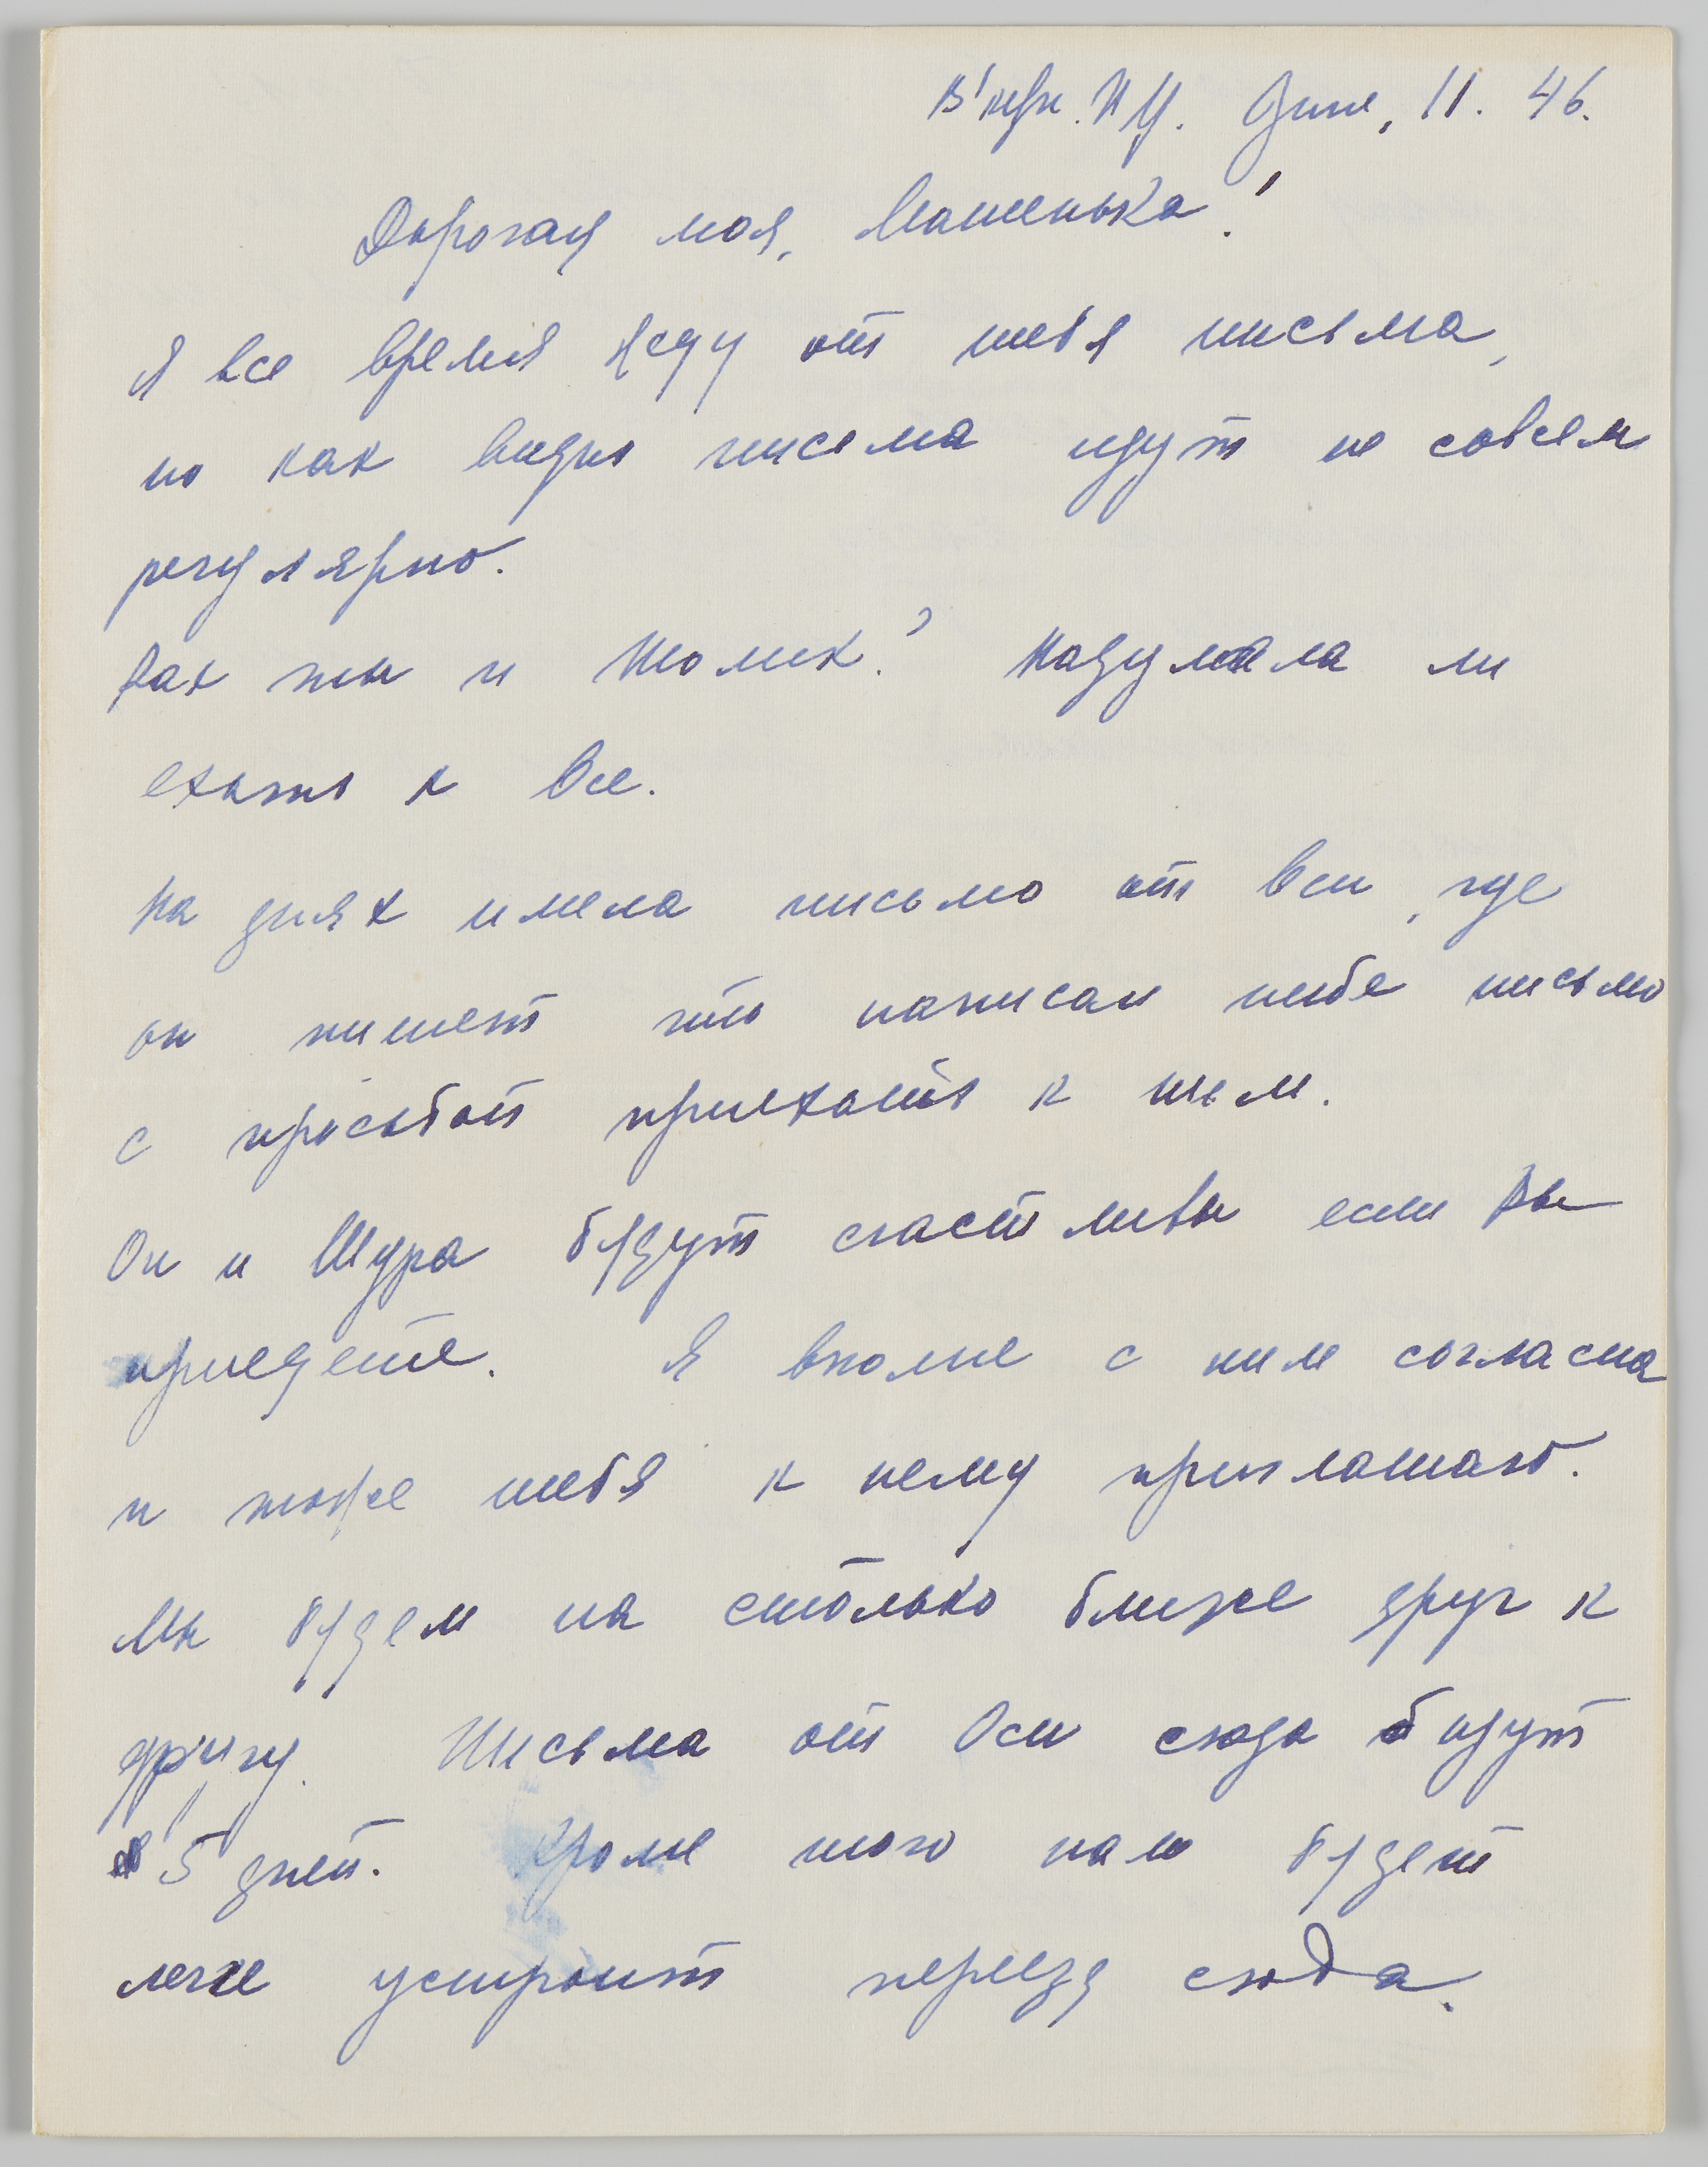 B'klyn. N.Y. June, 11. 46.
Дорогая моя, Машенька!
Я все время жду от тебя письма,
но как видно письма идут не совсем
регулярно.
Как ты и Толик? Надумала ли
ехать к Осе.
На днях имела письмо от Оси, где
он пишет что написал тебе письмо
с просьбой приехать к ним.
Он и Шура будут счастливы если Вы
приедете. Я вполне с ним согласна
и тоже тебя к нему приглашаю.
Мы будем на столько ближе друг к
другу. Письма от Оси сюда идут
5 дней. Кроме того нам будет
легче устроит переезд сюда.